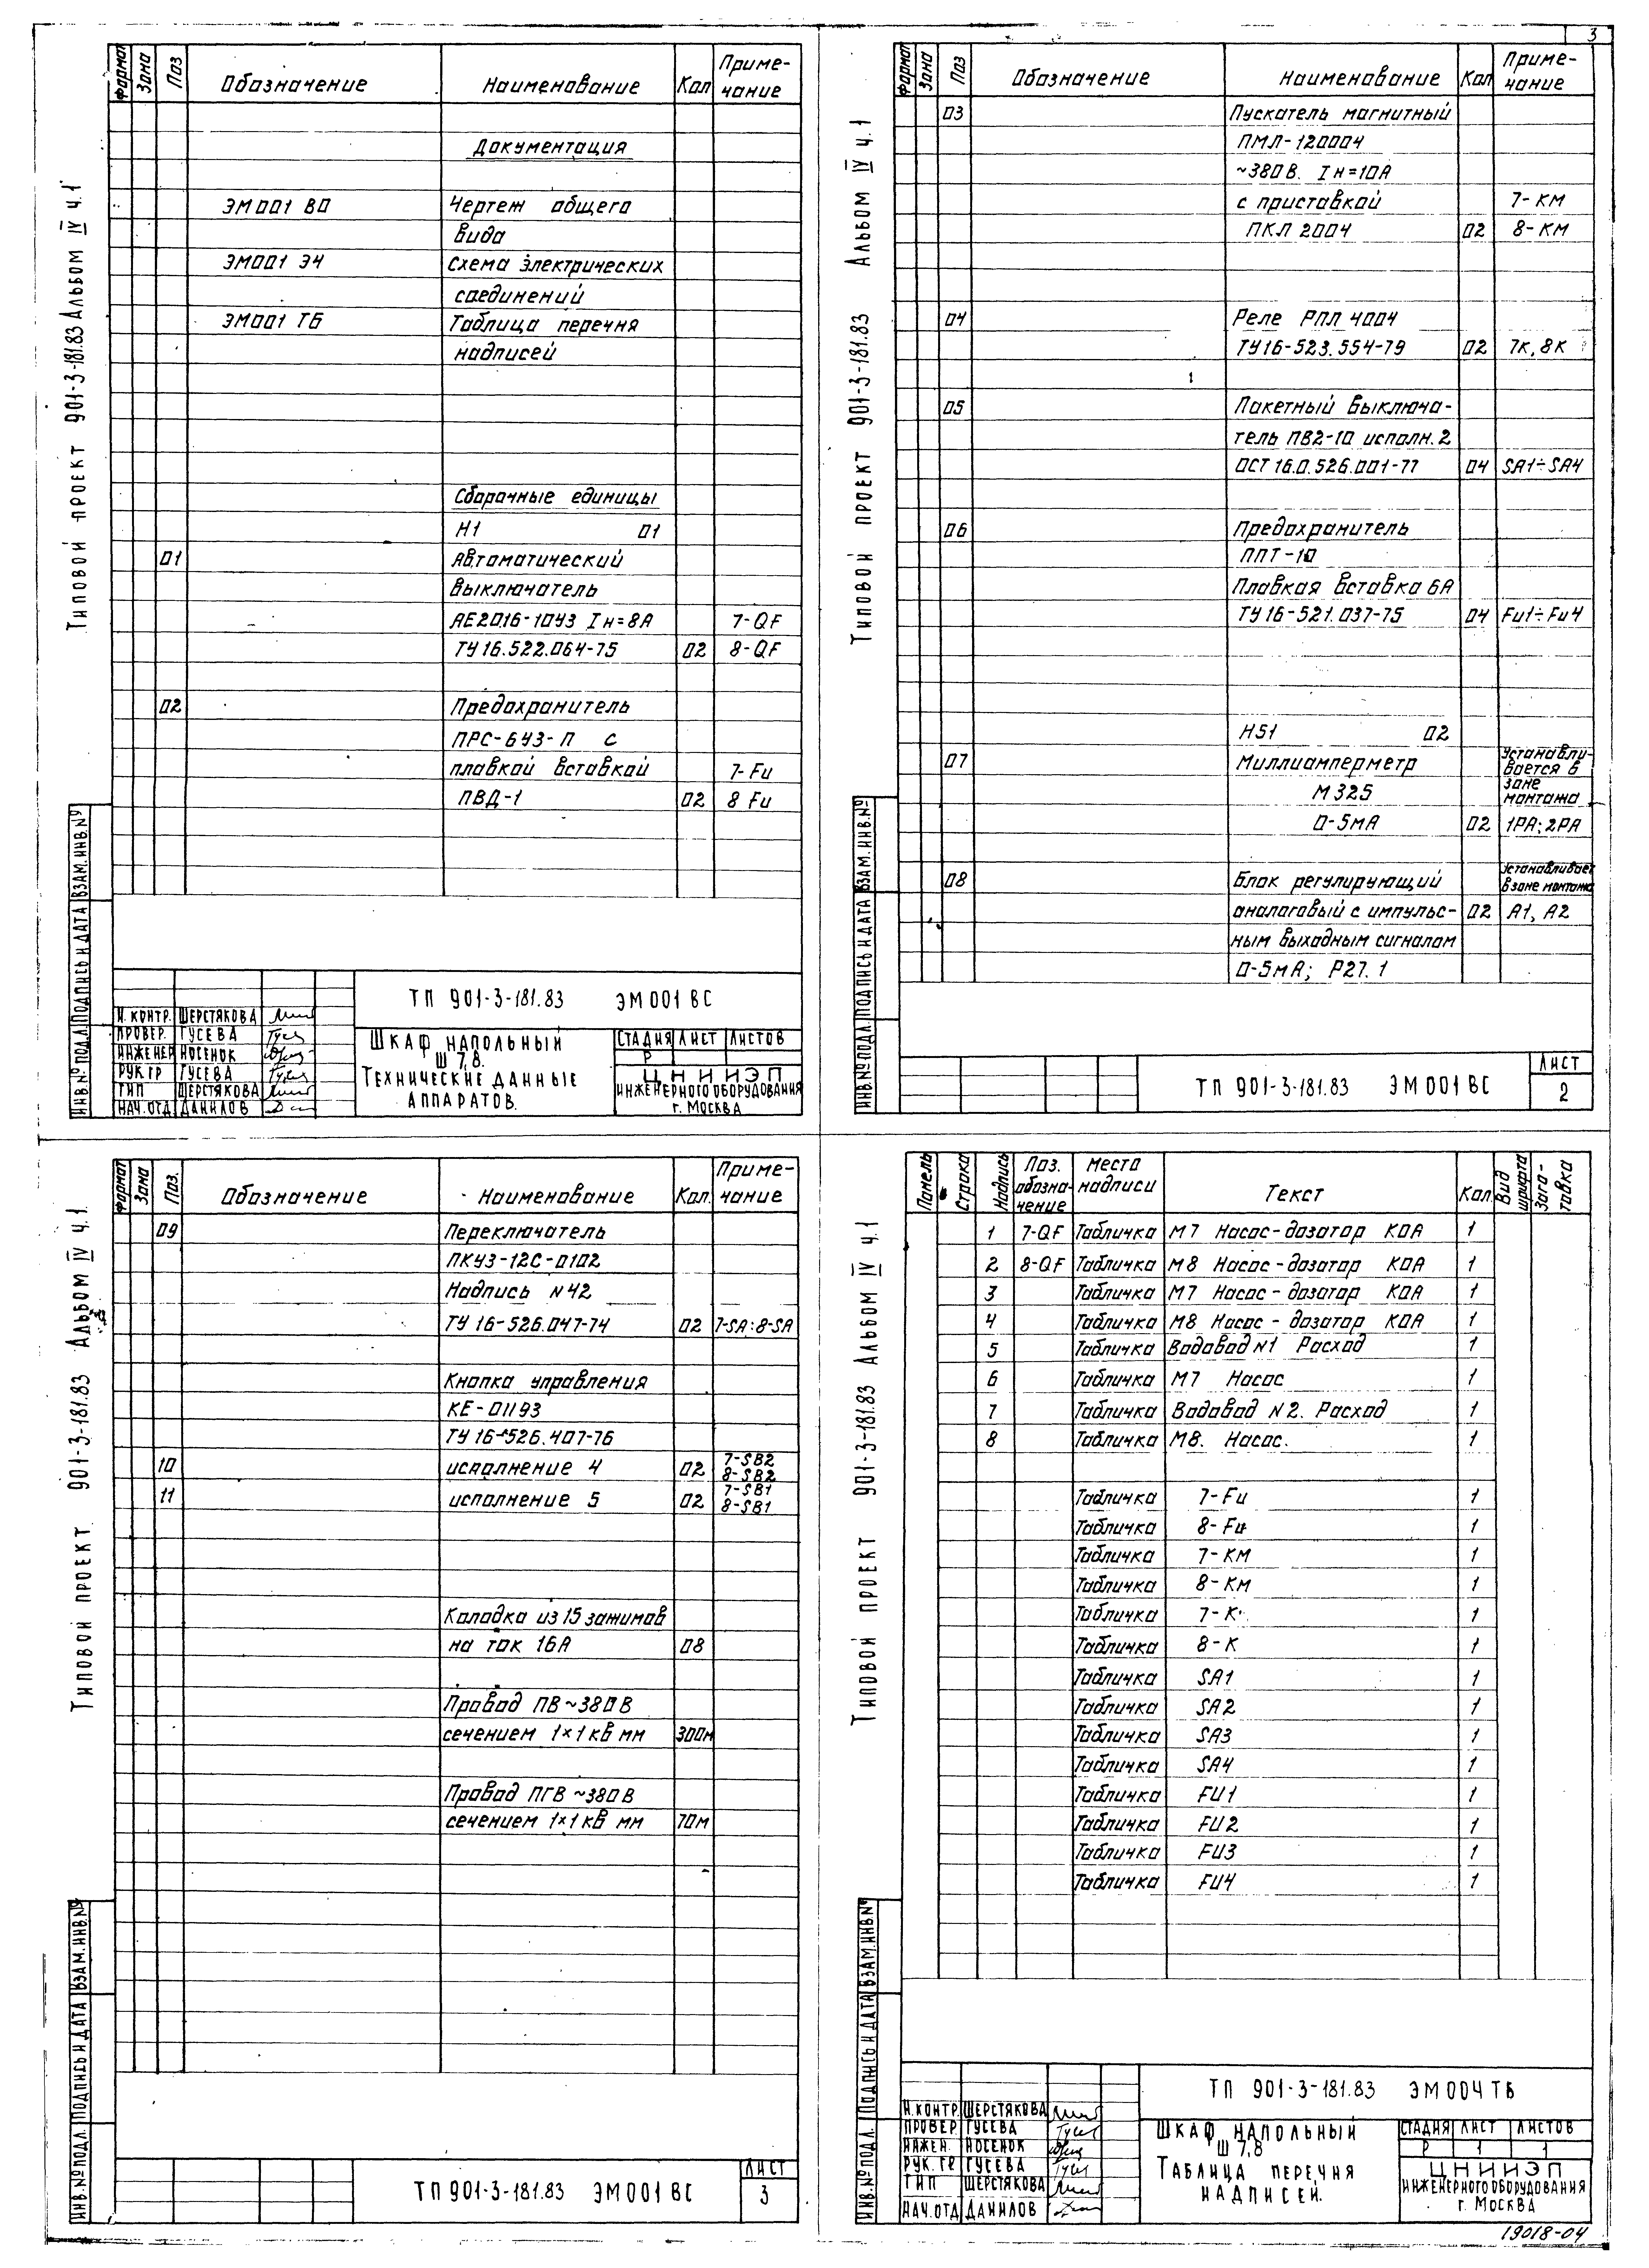 3
Типовой проект 901-3-181.83 Альбом IV ч.1
Формат Зона Поз Обозначение Наименование Кол Приме-
чание
Документация
ЭМ001 ВО Чертеж общего
вида
ЭМ001 Э4 Схема электрических
соединений
ЭМ001 ТБ Таблица перечня
надписей
Сборочные единицы
Н1 01
01 Автоматический
выключатель
АЕ2016-10У3 Iн=8А 7-QF
ТУ16.522.064-75 02 8-QF
02 Предохранитель
ПРС-6У3-П с
плавкой вставкой 7-Fu
ПВД-1 02 8 Fu
ИНВ.№ПОДЛ. ПОДПИСЬ И ДАТА ВЗАМ.ИНВ.№
ТП 901-3-181.83 ЭМ001ВС
Н.КОНТР. ШЕРСТЯКОВА
ПРОВЕР. ГУСЕВА
ИНЖЕНЕР НОСЕНОК
РУК.ГР ГУСЕВА
ГИП ШЕРСТЯКОВА
НАЧ.ОТД ДАНИЛОВ
Шкаф напольный
Ш 7,8.
Технические данные
аппаратов.
СТАДИЯ ЛИСТ ЛИСТОВ
Р
ЦНИИЭП
ИНЖЕНЕРНОГО ОБОРУДОВАНИЯ
г. МОСКВА
Типовой проект 901-3-181.83 Альбом IV ч.1
Формат Зона Поз Обозначение Наименование Кол Приме-
чание
03 Пускатель магнитный
ПМЛ-120004
~380В. Iн=10А
с приставкой 7-КМ
ПКЛ 2004 02 8-КМ
04 Реле РПЛ 4004
ТУ16-523.554-79 02 7К, 8К
05 Пакетный выключа-
тель ПВ2-10 исполн.2
ОСТ 16.0.526.001-77 04 SA1÷SA4
06 Предохранитель
ППТ-10
Плавкая вставка 6А
ТУ16-521.037-75 04 Fu1÷Fu4
Н51 02
07 Миллиамперметр Устанавли-
вается в
М325 зоне
монтажа
0-5мА 02 1РА; 2РА
08 Блок регулирующий Устанавливает
в зоне монтажа
аналоговый с импульс- 02 А1, А2
ным выходным сигналом
0-5мА; Р27.1
ИНВ.№ПОДЛ. ПОДПИСЬ И ДАТА ВЗАМ.ИНВ.№
ТП 901-3-181.83 ЭМ001ВС
ЛИСТ
2
Типовой проект. 901-3-181.83 Альбом IV ч.1.
Формат Зона Поз. Обозначение Наименование Кол. Приме-
чание
09 Переключатель
ПКУ3-12С-0102
Надпись №42
ТУ 16-526.047-74 02 7-SA:8-SA
Кнопка управления
КЕ-01193
ТУ 16-526.407-76
10 исполнение 4 02 7-SB2
8-SB2
11 исполнение 5 02 7-SB1
8-SB1
Колодка из 15 зажимов
на ток 16А 08
Провод ПВ ~380В
сечением 1×1кв мм 300м
Провод ПГВ ~380В
сечением 1×1кв мм 70м
ИНВ.№ПОДЛ. ПОДПИСЬ И ДАТА ВЗАМ.ИНВ.№
ТП 901-3-181.83 ЭМ001ВС
ЛИСТ
3
Типовой проект 901-3-181.83 Альбом IV ч.1
Панель Строка Надпись Поз.
обозна-
чение Место
надписи Текст Кол. Вид
шрифта Заго-
товка
1 7-QF Табличка М7 Насос-дозатор КОА 1
2 8-QF Табличка М8 Насос-дозатор КОА 1
3 Табличка М7 Насос-дозатор КОА 1
4 Табличка М8 Насос-дозатор КОА 1
5 Табличка Водовод №1 Расход 1
6 Табличка М7 Насос 1
7 Табличка Водовод №2. Расход 1
8 Табличка М8. Насос. 1
Табличка 7-Fu 1
Табличка 8-Fu 1
Табличка 7-КМ 1
Табличка 8-КМ 1
Табличка 7-К 1
Табличка 8-К 1
Табличка SA1 1
Табличка SA2 1
Табличка SA3 1
Табличка SA4 1
Табличка FU1 1
Табличка FU2 1
Табличка FU3 1
Табличка FU4 1
ИНВ.№ПОДЛ. ПОДПИСЬ И ДАТА ВЗАМ.ИНВ№
ТП 901-3-181.83 ЭМ004ТБ
Н.КОНТР. ШЕРСТЯКОВА
ПРОВЕР. ГУСЕВА
ИНЖЕН. НОСЕНОК
РУК.ГР ГУСЕВА
ГИП ШЕРСТЯКОВА
НАЧ.ОТД ДАНИЛОВ
Шкаф напольный
Ш 7,8
Таблица перечня
надписей.
СТАДИЯ ЛИСТ ЛИСТОВ
Р 1 1
ЦНИИЭП
ИНЖЕНЕРНОГО ОБОРУДОВАНИЯ
г. МОСКВА
19018-04